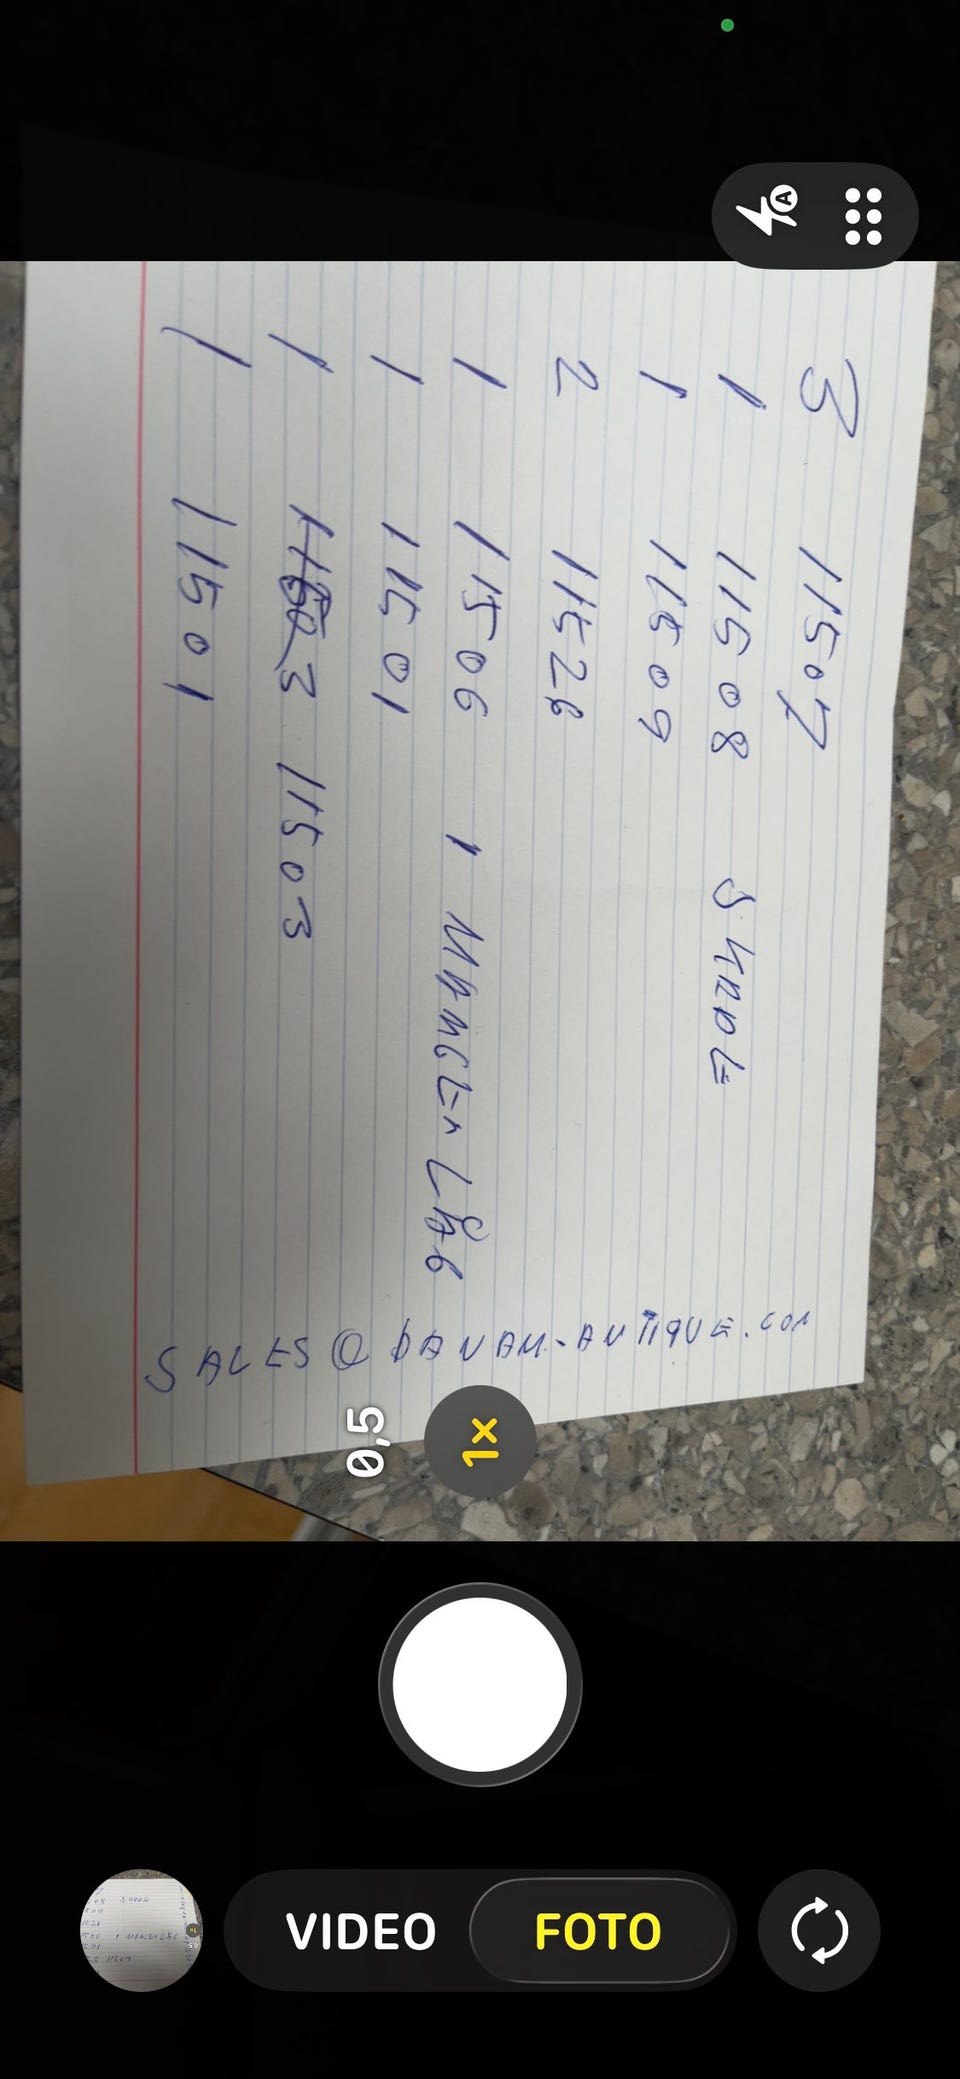 3 11507
1 11508 SKADE
1 11509
2 11528
1 11506 1 MANGLER LÅG
1 11501
1 11503
1 11501
SALES@DANAM-ANTIQUE.COM
0,5
1x
VIDEO FOTO